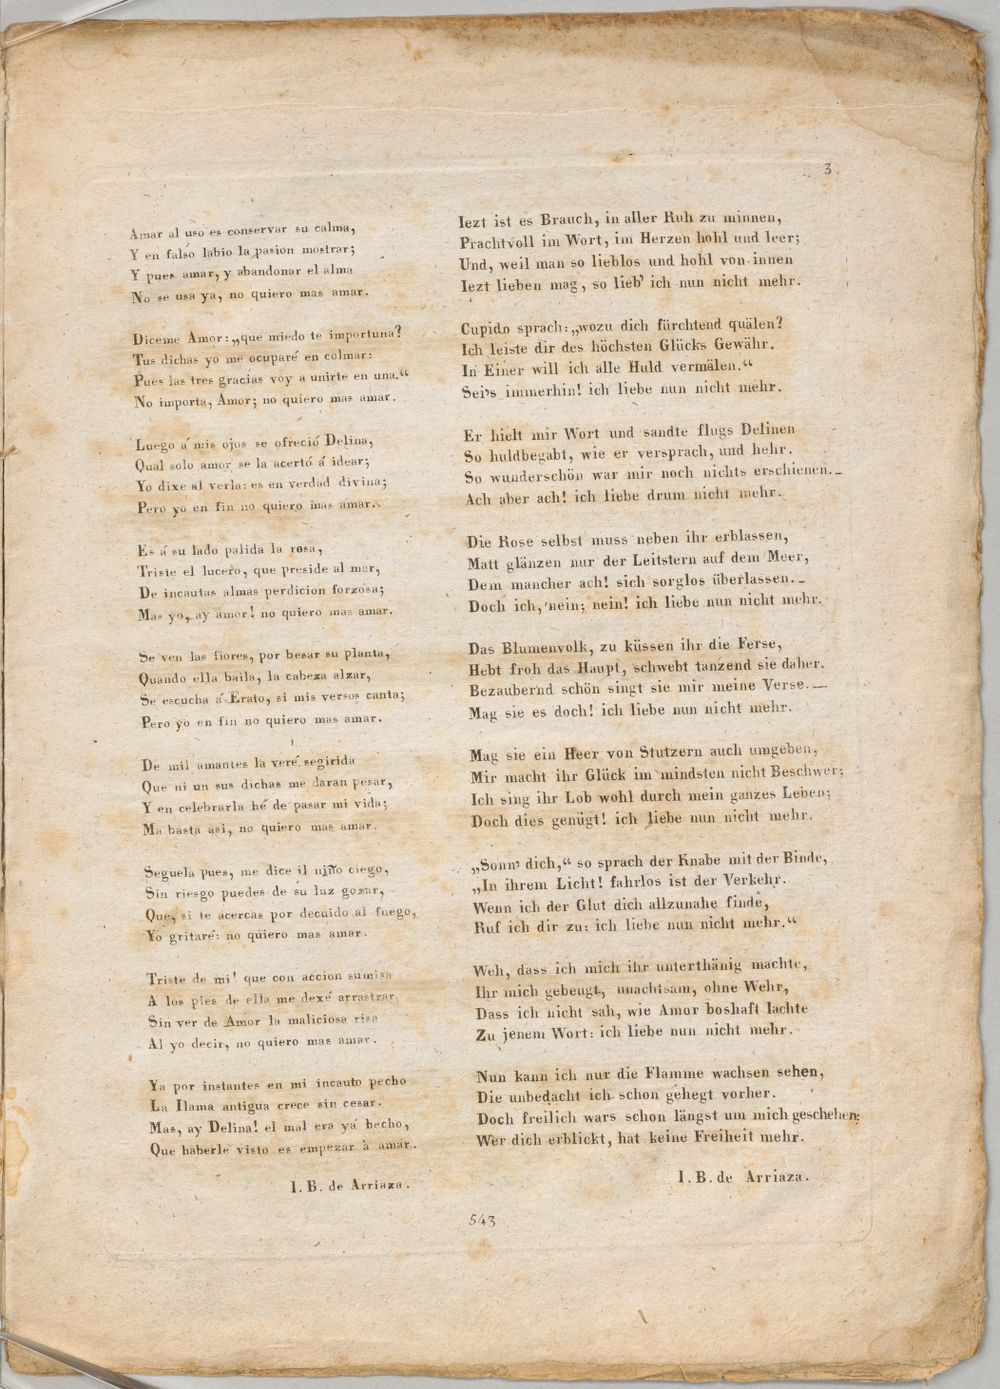 3
Amar al uso es conservar su calma,
Y en falso labio la pasion mostrar;
Y pues amar, y abandonar el alma
No se usa ya, no quiero mas amar.
Diceme Amor: „que miedo te importuna?
Tus dichas yo me ocuparé en colmar:
Pues las tres gracias voy a unirte en una.“
No importa, Amor; no quiero mas amar.
Luego á mis ojos se ofreció Delina,
Qual solo amor se la acertó á idear;
Yo dixe al verla: es en verdad divina;
Pero yo en fin no quiero mas amar.
Es á su lado palida la rosa,
Triste el lucero, que preside al mar,
De incautas almas perdicion forzosa;
Mas yo, ay amor! no quiero mas amar.
Se ven las flores, por besar su planta,
Quando ella baila, la cabeza alzar,
Se escucha á Erato, si mis versos canta;
Pero yo en fin no quiero mas amar.
De mil amantes la veré segirida
Que ni un sus dichas me daran pesar,
Y en celebrarla hé de pasar mi vida;
Ma basta asi, no quiero mas amar.
Seguela pues, me dice il niño ciego,
Sin riesgo puedes de su luz gozar,
Que, si te acercas por decuido al fuego,
Yo gritaré: no quiero mas amar.
Triste de mi! que con accion sumisa
A los pies de ella me dexé arrastrar
Sin ver de Amor la maliciosa risa
Al yo decir, no quiero mas amar.
Ya por instantes en mi incauto pecho
La llama antigua crece sin cesar.
Mas, ay Delina! el mal era ya hecho,
Que haberle visto es empezar à amar.
I. B. de Arriaza.
Iezt ist es Brauch, in aller Ruh zu minnen,
Prachtvoll im Wort, im Herzen hohl und leer;
Und, weil man so lieblos und hohl von innen
Iezt lieben mag, so lieb' ich nun nicht mehr.
Cupido sprach: „wozu dich fürchtend quälen?
Ich leiste dir des höchsten Glücks Gewähr.
In Einer will ich alle Huld vermälen.“
Sei's immerhin! ich liebe nun nicht mehr.
Er hielt mir Wort und sandte flugs Delinen
So huldbegabt, wie er versprach, und hehr.
So wunderschön war mir noch nichts erschienen. _
Ach aber ach! ich liebe drum nicht mehr.
Die Rose selbst muss neben ihr erblassen,
Matt glänzen nur der Leitstern auf dem Meer,
Dem mancher ach! sich sorglos überlassen. _
Doch ich, nein; nein! ich liebe nun nicht mehr.
Das Blumenvolk, zu küssen ihr die Ferse,
Hebt froh das Haupt, schwebt tanzend sie daher.
Bezaubernd schön singt sie mir meine Verse. _
Mag sie es doch! ich liebe nun nicht mehr.
Mag sie ein Heer von Stutzern auch umgeben,
Mir macht ihr Glück im mindsten nicht Beschwer;
Ich sing ihr Lob wohl durch mein ganzes Leben;
Doch dies genügt! ich liebe nun nicht mehr.
„Sonn' dich,“ so sprach der Knabe mit der Binde,
„In ihrem Licht! fahrlos ist der Verkehr.
Wenn ich der Glut dich allzunahe finde,
Ruf ich dir zu: ich liebe nun nicht mehr.“
Weh, dass ich mich ihr unterthänig machte,
Ihr mich gebeugt, unachtsam, ohne Wehr,
Dass ich nicht sah, wie Amor boshaft lachte
Zu jenem Wort: ich liebe nun nicht mehr.
Nun kann ich nur die Flamme wachsen sehen,
Die unbedacht ich schon gehegt vorher.
Doch freilich wars schon längst um mich geschehen;
Wer dich erblickt, hat keine Freiheit mehr.
I. B. de Arriaza.
543